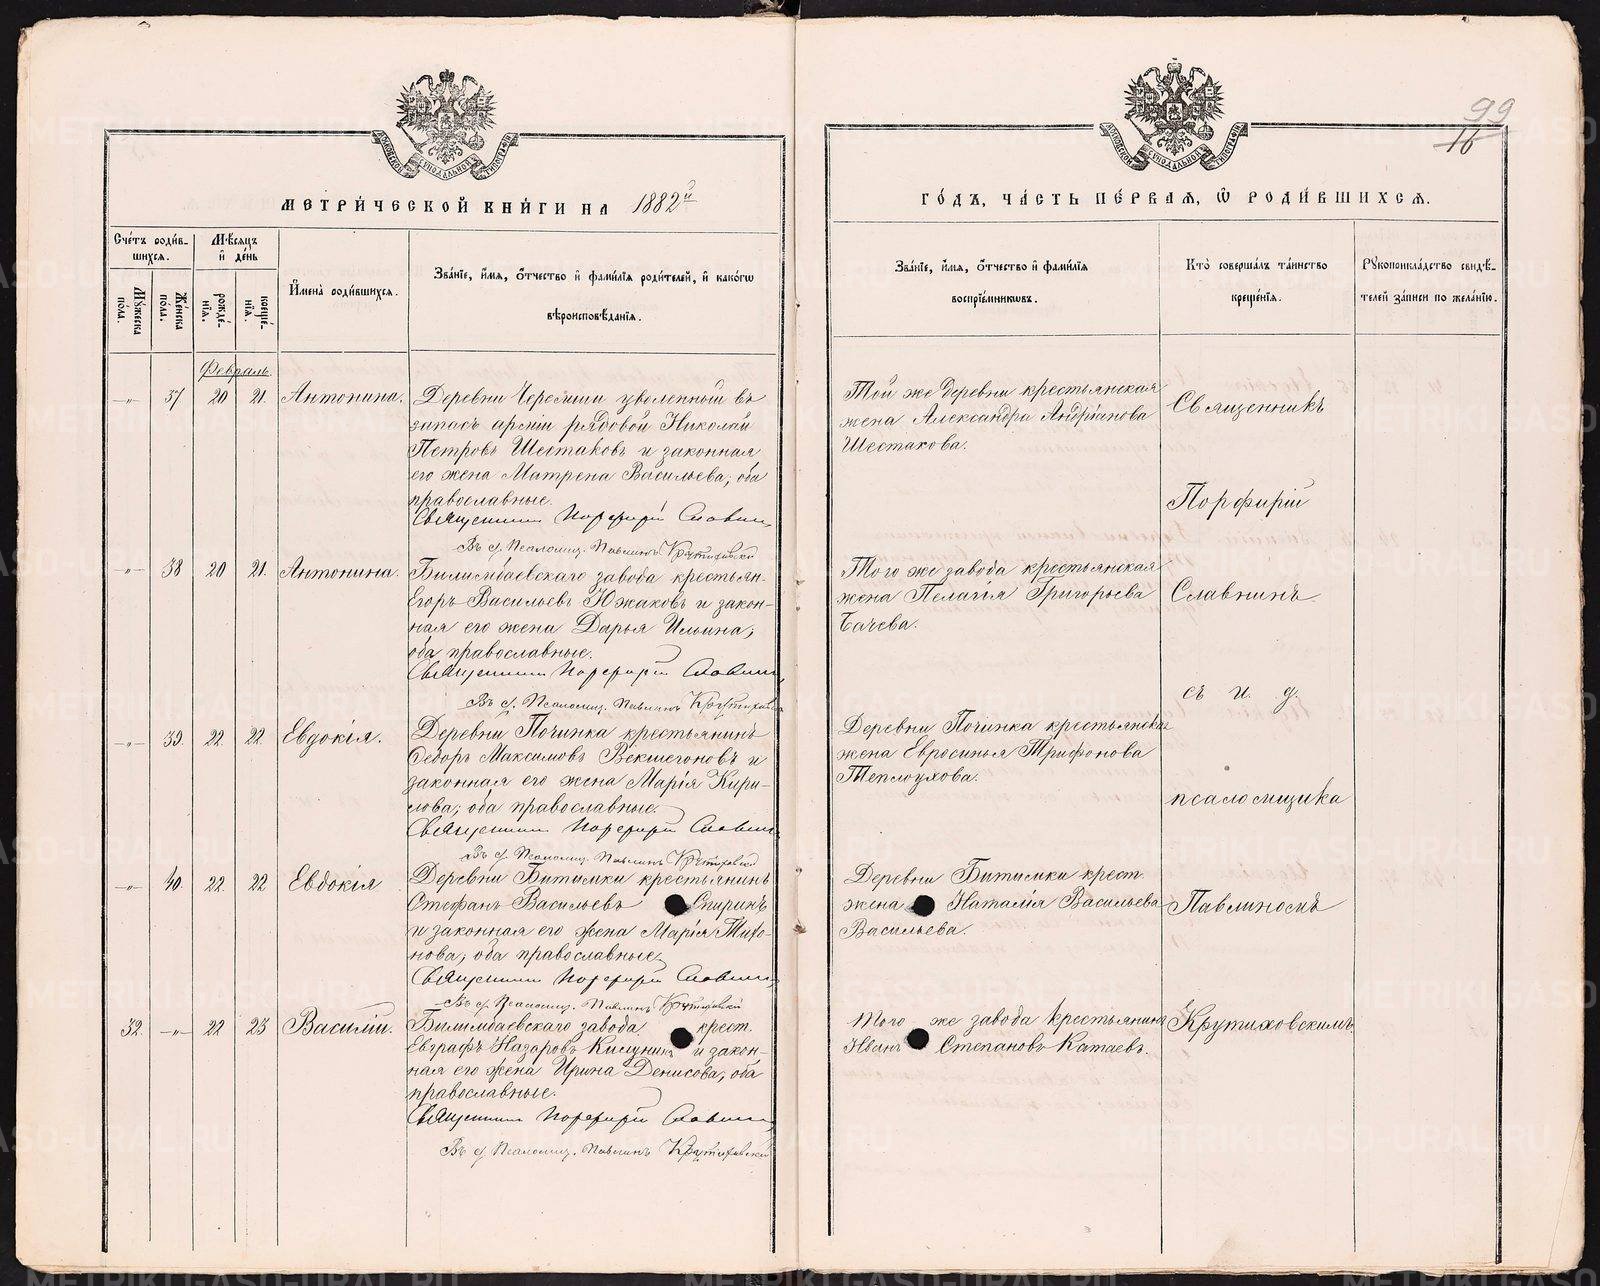 99
16
МОСКОВСКОЙ СѴНОДАЛЬНОЙ ТИПОГРАФІИ
МОСКОВСКОЙ СѴНОДАЛЬНОЙ ТИПОГРАФІИ
МЕТРИ́ЧЕСКОЙ КНИ́ГИ НА 1882й
ГО́ДЪ, ЧА́СТЬ ПЕ́РВАЯ, Ѿ РОДИ́ВШИХСЯ.
Сче́тъ роди́в-
шихся.
Му́жеска
по́ла.
Же́нска
по́ла.
Мѣ́сяцъ
и҆ де́нь
рожде́-
нїя.
креще́-
нїя.
И҆мена̀ роди́вшихся.
Зва́нїе, и҆́мя, ѻ҆́тчество и҆ фами́лїя роди́телей, и҆ како́гѡ
вѣроисповѣ́данїя.
Зва́нїе, и҆́мя, ѻ҆́тчество и҆ фами́лїя
воспрїе́мникѡвъ.
Кто̀ соверша́лъ та́инство
креще́нїя.
Рꙋкоприкла́дство свидѣ́-
телей за́писи по жела́нїю.
Февраль.
—„— 37 20 21. Антонина.
Деревни Черемши уволенный въ
запасъ арміи рядовой Николай
Петровъ Шестаковъ и законная
его жена Матрена Васильева; оба
православные.
Священникъ Порфирій Славнинъ
Въ д. Псаломщ. Павлинъ Крутиховскій
Той же деревни крестьянская
жена Александра Андріанова
Шестакова.
—„— 38 20 21. Антонина.
Билимбаевскаго завода крестьян.
Егоръ Васильевъ Южаковъ и закон-
ная его жена Дарья Ильина;
оба православные.
Священникъ Порфирій Славнинъ
Въ д. Псаломщ. Павлинъ Крутиховскій
Того же завода крестьянская
жена Пелагія Григорьева
Бачева.
—„— 39. 22. 22. Евдокія.
Деревни Починка крестьянинъ
Ѳедоръ Максимовъ Векшегоновъ и
законная его жена Марія Кири-
лова; оба православные.
Священникъ Порфирій Славнинъ
Въ д. Псаломщ. Павлинъ Крутиховскій
Деревни Починка крестьянская
жена Евросинья Трифонова
Теплоухова.
—„— 40. 22. 22 Евдокія
Деревни Битимки крестьянинъ
Стефанъ Васильевъ Спиринъ
и законная его жена Марія Тихо-
нова; оба православные
Священникъ Порфирій Славнинъ
Въ д. Псаломщ. Павлинъ Крутиховскій
Деревни Битимки крест.
жена Наталія Васильева
Васильева.
32. —„— 22 23 Василій.
Билимбаевскаго завода крест.
Евграфъ Назаровъ и закон-
ная его жена Ирина Денисова; оба
православные.
Священникъ Порфирій Славнинъ
Въ д. Псаломщ. Павлинъ Крутиховскій
Того же завода крестьянинъ
Иванъ Степановъ Катаевъ.
Священникъ
Порфирій
Славнинъ
съ и. д.
псаломщика
Павлиномъ
Крутиховскимъ
METRIKI.GASO-URAL.RU